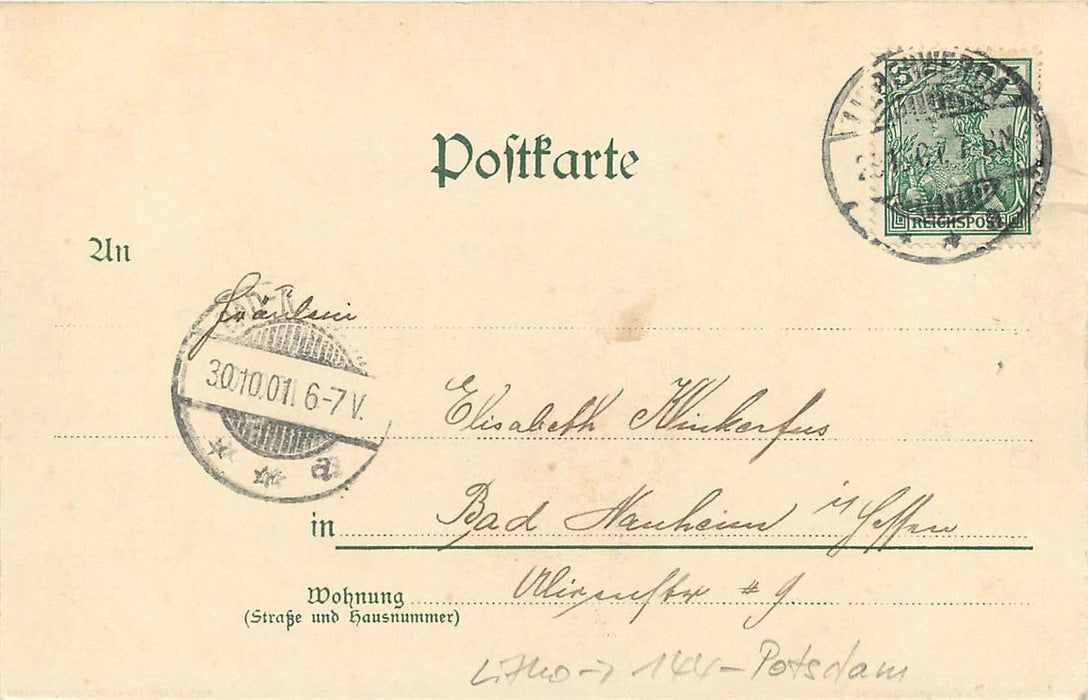 Postkarte
REICHSPOST
An
Fräulein
30.10.01. 6-7 V.
Elisabeth Klinkerfus
in Bad Nauheim i/ Hessen
Wohnung # 9
(Straße und Hausnummer)
Litho → 144 - Potsdam